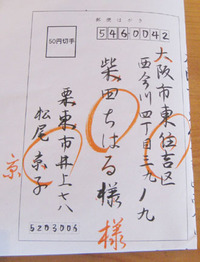 郵便はがき
50円切手
5460042
大阪市東住吉区
西今川四丁目三九ノ九
柴田ちはる様
様
栗東市井上七八
松尾京子
京
5203005